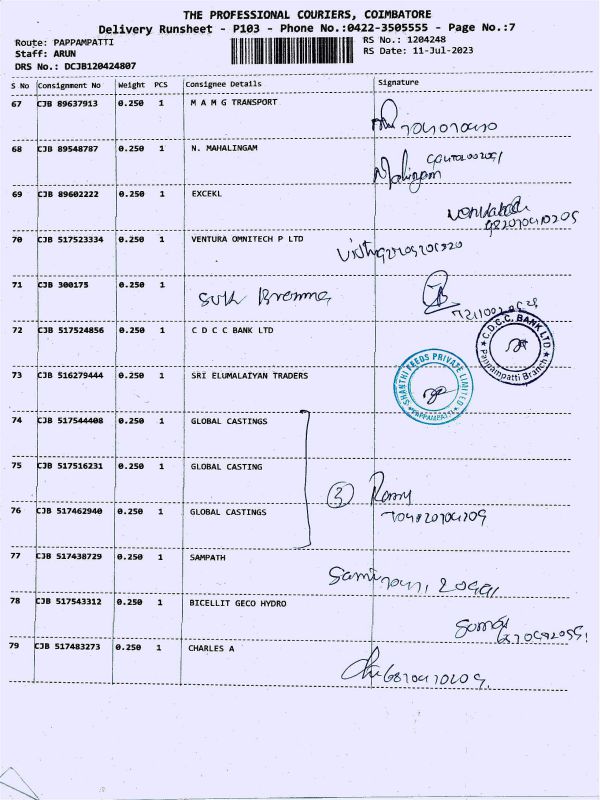 THE PROFESSIONAL COURIERS, COIMBATORE
Delivery Runsheet - P103 - Phone No.:0422-3505555 - Page No.:7
Route: PAPPAMPATTI
RS No.: 1204248
Staff: ARUN
RS Date: 11-Jul-2023
DRS No.: DCJB120424807
S No Consignment No Weight PCS Consignee Details Signature
67 CJB 89637913 0.250 1 M A M G TRANSPORT
68 CJB 89548787 0.250 1 N. MAHALINGAM
Mahlingam
69 CJB 89602222 0.250 1 EXCEKL
70 CJB 517523334 0.250 1 VENTURA OMNITECH P LTD
71 CJB 300175 0.250 1
72 CJB 517524856 0.250 1 C D C C BANK LTD
C.D.C.C. BANK LTD.
Pappampatti Branch
73 CJB 516279444 0.250 1 SRI ELUMALAIYAN TRADERS
SHANTHI FEEDS PRIVATE LIMITED
PAPPAMPATTI
74 CJB 517544408 0.250 1 GLOBAL CASTINGS
75 CJB 517516231 0.250 1 GLOBAL CASTING
3
76 CJB 517462940 0.250 1 GLOBAL CASTINGS
77 CJB 517438729 0.250 1 SAMPATH
78 CJB 517543312 0.250 1 BICELLIT GECO HYDRO
79 CJB 517483273 0.250 1 CHARLES A